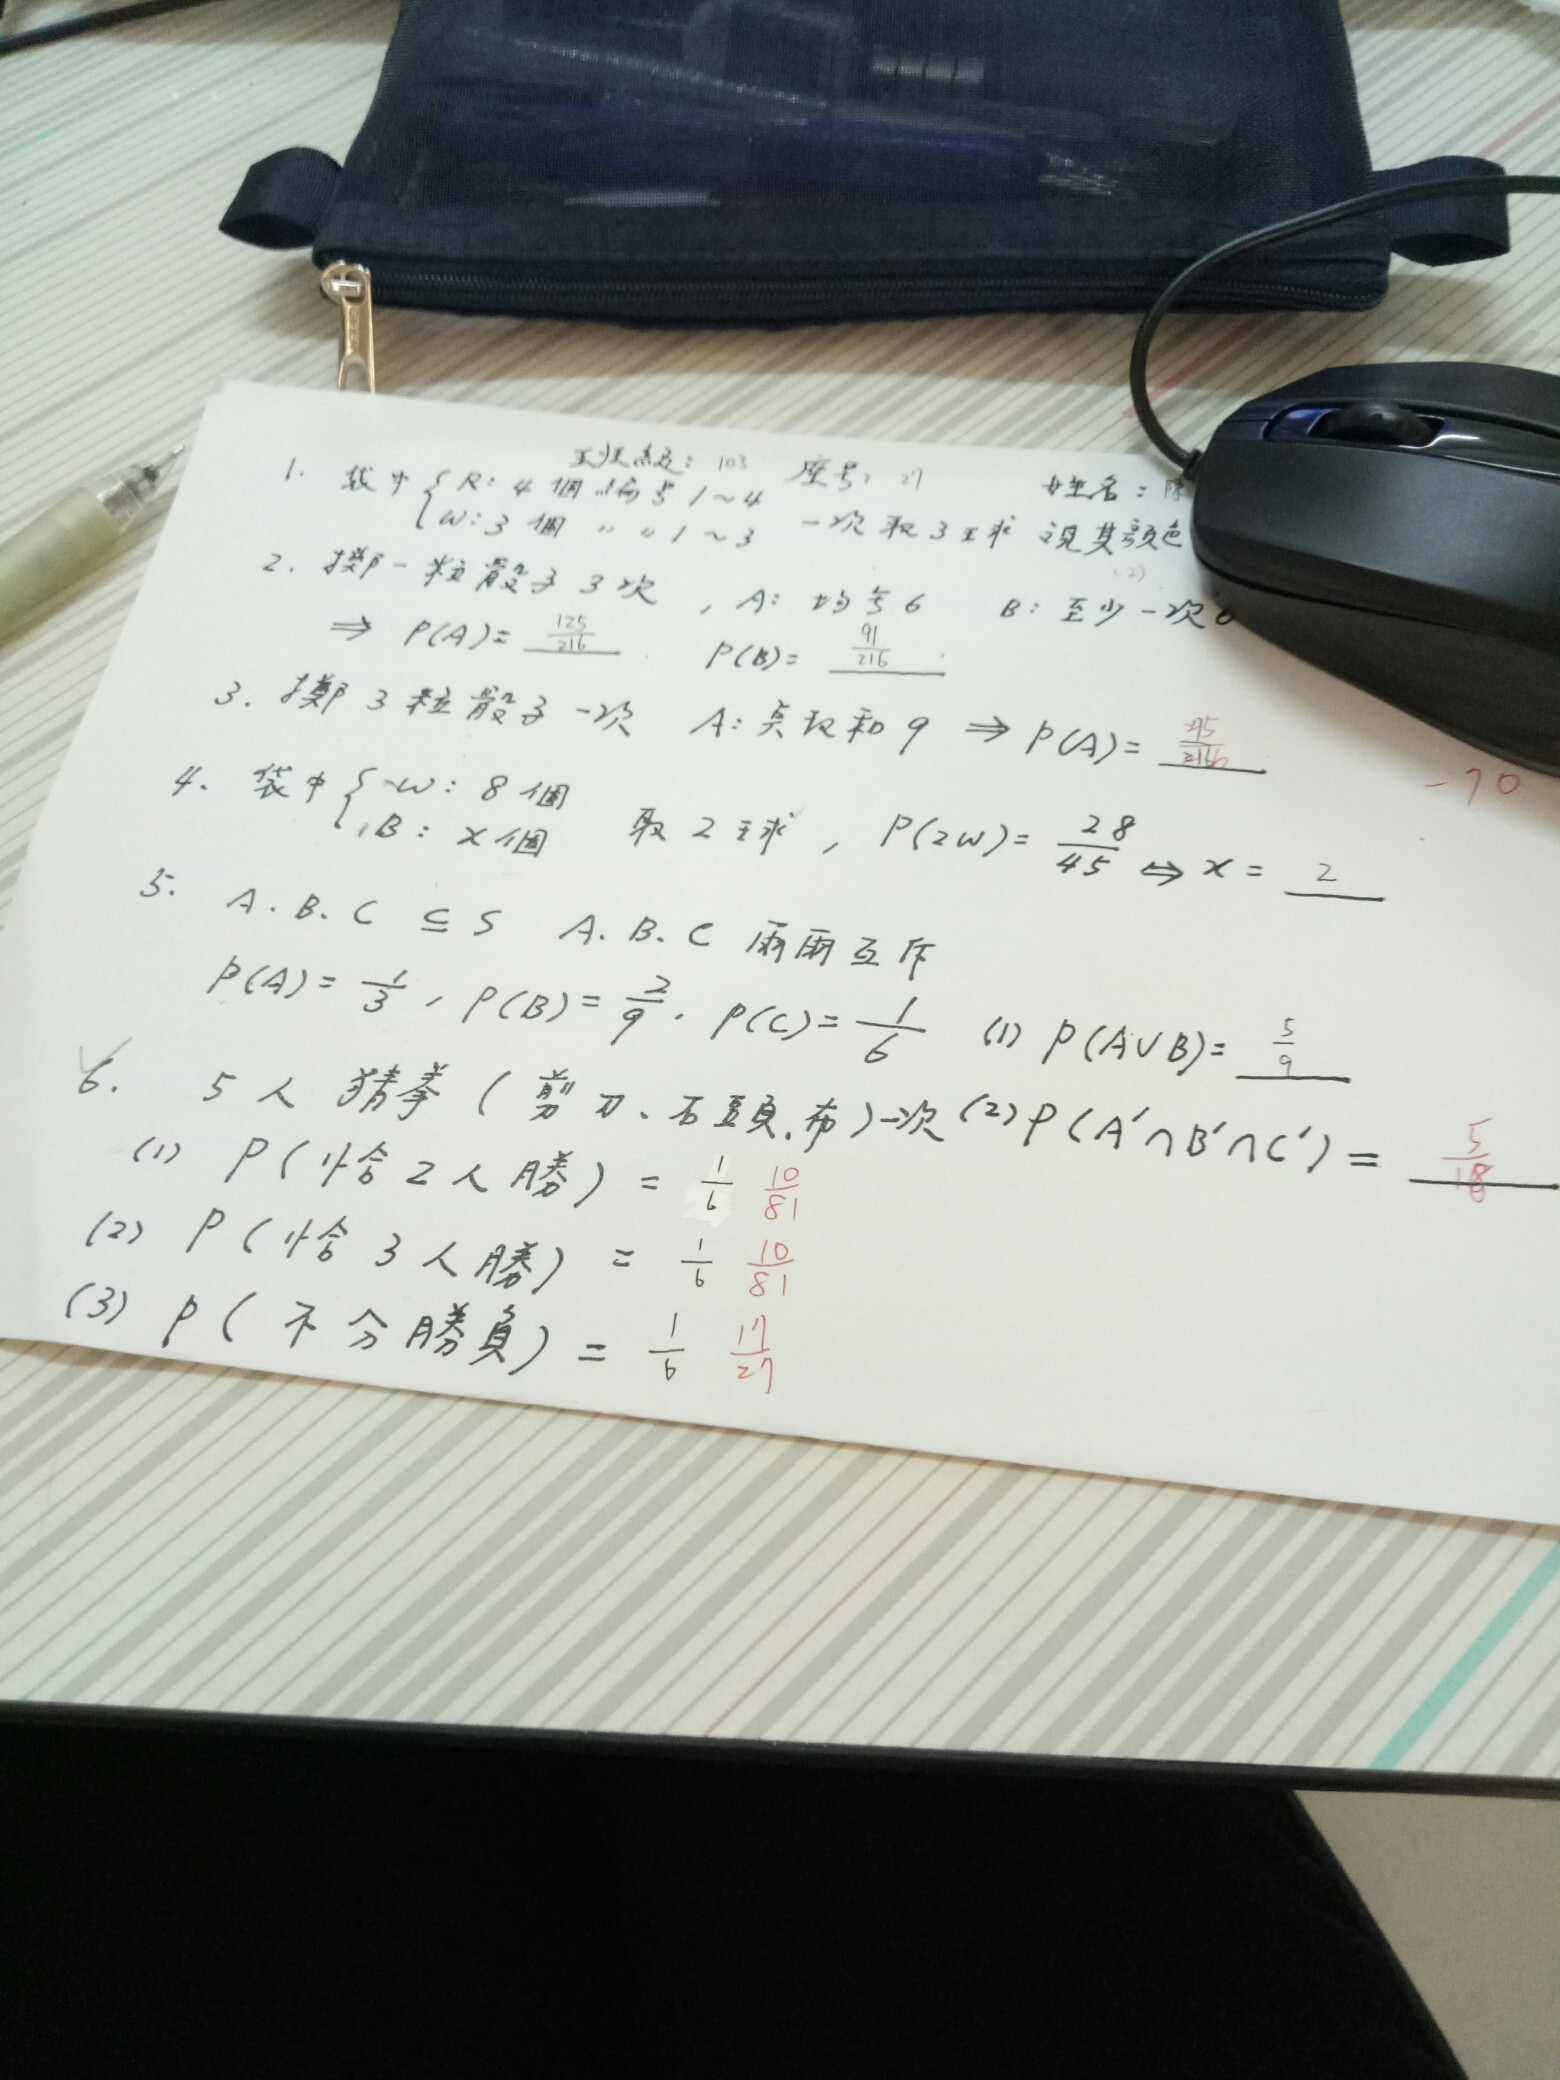 班級：103 座号：27 姓名：陳
1. 袋中 { R：4個 編号 1～4
W：3個 〃 〃 1～3 一次取3球 視其顏色
(2)
2. 擲一粒骰子3次，A：均≠6 B：至少一次6
⇒ P(A)= 125/216 P(B)= 91/216
3. 擲3粒骰子一次 A：点数和9 ⇒ P(A)= /216
-70
4. 袋中 { W：8個
B：x個 取2球，P(2W)= 28/45 ⇔ x= 2
5. A.B.C ⊆ S A.B.C 兩兩互斥
P(A)= 1/3，P(B)= 2/9，P(C)= 1/6 (1) P(A∪B)= 5/9
(2) P(A′∩B′∩C′)= 5/18
6. 5人猜拳(剪刀、石頭、布)一次
(1) P(恰2人勝)= 1/6 10/81
(2) P(恰3人勝)= 1/6 10/81
(3) P(不分勝負)= 1/6 17/27